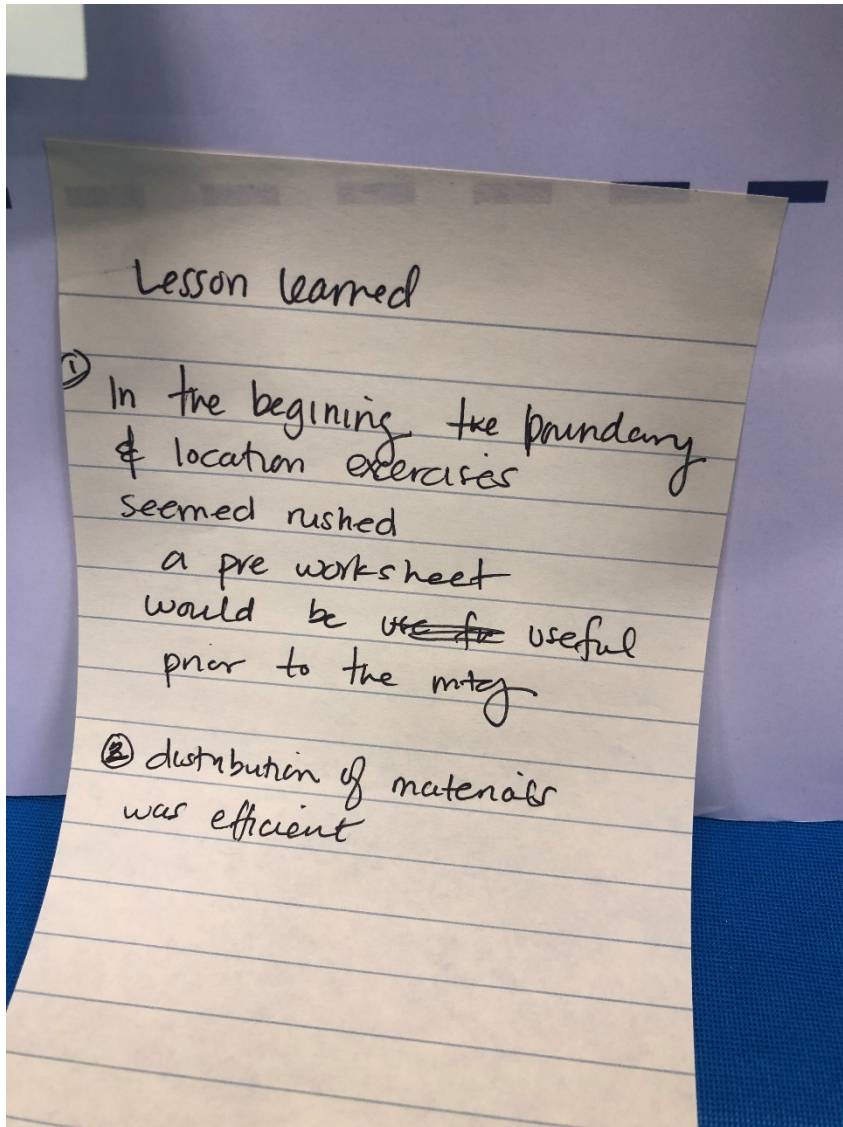 Lesson learned
① In the begining the boundary
& location exercises
seemed rushed
a pre worksheet
would be useful
prior to the mtg
② distribution of materials
was efficient